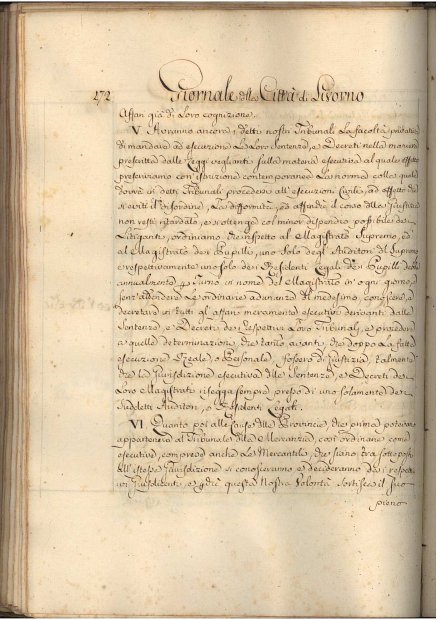 172 Giornale della Città di Livorno
Affari già di Loro cognizione.
V. Avranno ancora i detti nostri Tribunali La facoltà privativa
di mandare ad esecuzione Le Loro Sentenze, e Decreti nella maniera
prescritta dalle Leggi veglianti sulla materia esecutiva al quale effetto
prescriviamo con istruzione contemporanea La norma colla quale
dovrà in detti Tribunali procedersi all'esecuzioni Civili, ad effetto che
si eviti il disordine, La difformità, ed affinchè il corso della Giustizia
non resti ritardato, e si ottenga col minor dispendio possibile dei
Litiganti, ordiniamo che rispetto al Magistrato Supremo, ed
al Magistrato dei Pupilli, uno solo degli Auditori del Supremo
e respettivamente uno solo dei Residenti Legali dei Pupilli
annualmente in nome del Magistrato in ogni giorno,
senz'attendere Le ordinarie adunanze del medesimo, conoscere, e
decretare in tutti gli affari meramente esecutivi derivanti dalle
Sentenze, e Decreti dei respettivi Loro Tribunali, e procedere
a quelle determinazioni che tanto avanti, che doppo La fatta
esecuzione Reale, o Personale, fossero di Giustizia, talmente
che La Giurisdizione esecutiva delle Sentenze, e Decreti dei
Loro Magistrati risegga sempre presso di uno solamente dei
suddetti Auditori, o Residenti Legali.
VI Quanto poi alle Cause della Provincia, che prima potevano
appartenere al Tribunale della Mercanzia, così ordinarie come
esecutive, comprese anche Le Mercantili, che siano tra sottoposti
all'istessa Giurisdizione si conosceranno e decideranno dai respetti-
vi Giusdicenti, e perchè questa Nostra Volontà sortisca il suo
pieno